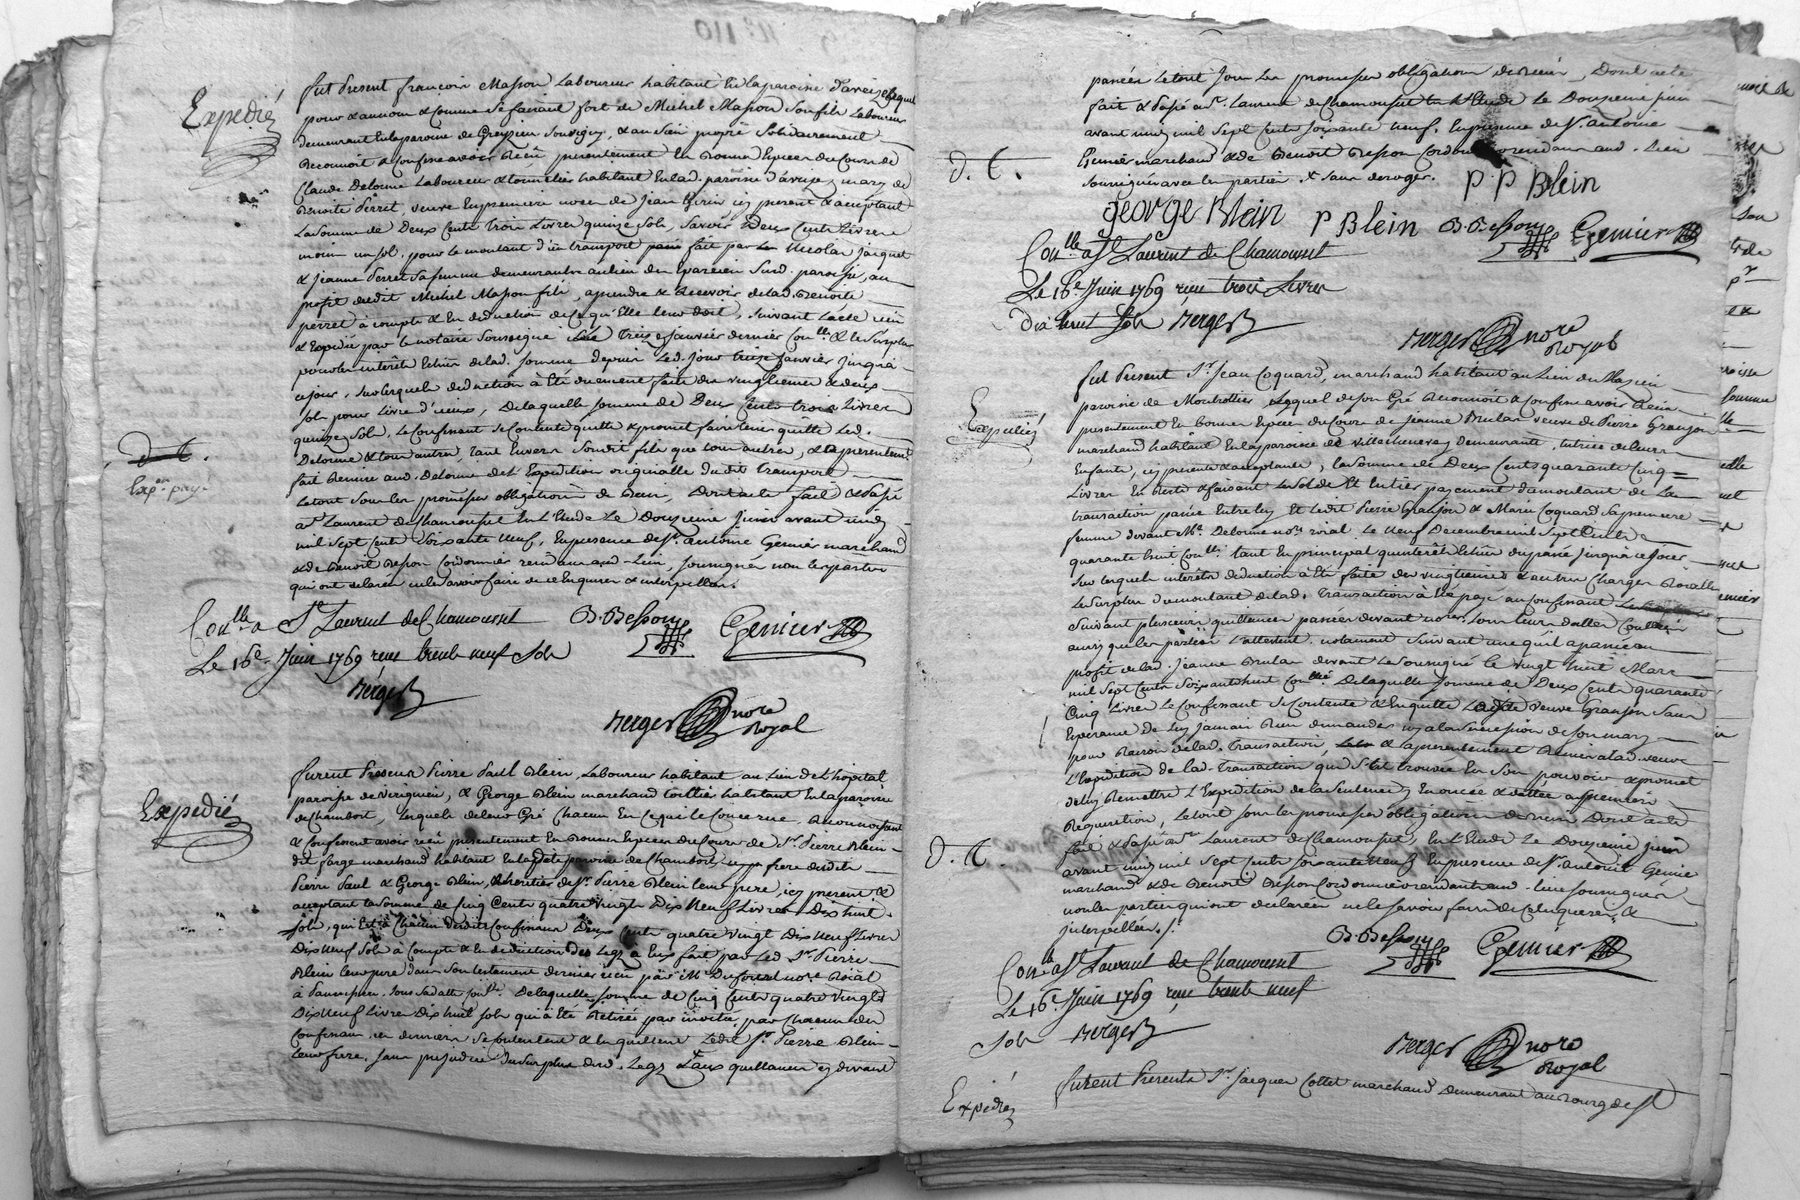 Expedié
fut Present françois Masson Laboureur habitant En la paroisse d'aveize lequel
pour & au nom & comme se faisant fort de Michel Masson son fils Laboureur
demeurant En la paroisse de Greyzieu souvigny, & au sien propre solidairement
Reconnoit & confesse avoir Reçu presentement En bonnes Especes du Cours de
Claude Delorme Laboureur & tonnelier habitant En lad. paroisse d'aveize, mary de
Benoite Perret, veuve En premiere noces de Jean present & acceptant
La somme de Deux Cents Trois Livres quinze sols, savoir Deux Cents Livres
moins un sol, pour le montant d'un transport fait par Nicolas Jaquet
& Jeanne Perret sa femme demeurants au lieu du susd. paroisse, au
profit dudit Michel Masson fils, a prendre & Recevoir de lad. Benoite
perret à compte & En deduction de ce qu'Elle leur doit, suivant l'acte reçu
& Expedié par le notaire soussigné Le Treize Janvier dernier Con.lle & le surplus
pour les interêts de lad. somme depuis led. jour treize Janvier jusqu'a
ce jour, sur lesquels deduction à Eté duement faite des vingtiemes & deux
sols pour Livre d'iceux, De laquelle somme de Deux Cents trois Livres
quinze sols, Le Confessant se Contente quitte & promet faire tenir quitte led.
Delorme & tous autres, tant Envers sond. fils que tous autres, & à presentement
fait Remise aud. Delorme de l'Expedition originalle dudit transport
Le tout sous les promesses obligations de Biens, Dont acte fait & Passé
a St Laurent de Chamousset En L'Etude Le Douzieme Juin avant midy
mil sept Cents soixante neuf, En presence de Sr. antoine Gernier marchand
& de Benoit Besson Cordonnier residants aud. Lieu, soussignés non les parties
qui ont declaré ne le savoir faire de ce Enquises & interpellées.
d. C.
Exp.on pay.
Con.lle a St Laurent de Chamousset
Le 16e. Juin 1769 reçu trente neuf Sols
Berger
B. Besson
Gernier
Berger nore
Royal
Expedié
furent Presents Pierre Paul Blein, Laboureur habitant au Lieu de L'hopital
paroisse de , & George Blein marchand toillier habitant En la paroisse
de Chambost, Lesquels de leur Gré Chacun En ce qui le Concerne Reconnoissent
& Confessent avoir reçu presentement En bonnes Especes du Cours de Sr. Pierre Blein
dit farge marchand habitant En ladte paroisse de Chambost, frere desdits
Pierre Paul & George Blein, & heritier de Sr. Pierre Blein leur pere, icy present &
acceptant La somme de Cinq Cents quatre vingts Dix Neuf Livres Dix huit
sols, qui Est à Chacun desdits Confessants Deux Cents quatre vingt Dix Neuf Livres
Dix neuf sols à Compte & En deduction des Legs à Eux fait par led. Sr. Pierre
Blein leur pere dans son testament dernier reçu par Me. nore. Roial
à sous sa datte Con.lle. De laquelle somme de Cinq Cents quatre vingts
Dix Neuf Livres Dix huit sols qui à Eté Retirée par moitié, par Chacun des
Confessants, ces derniers se contentent & En quittent Ledit Sr. Pierre Blein
leur frere, sans prejudice du surplus dud. Legs & aux quittances cy devant
passées Le tout sous Les promesses obligations de Biens, Dont acte
fait & Passé a St. Laurent de Chamousset En L'Etude Le Douzieme Juin
avant midy mil sept Cents soixante neuf, En presence de Sr. Antoine
Gernier marchand & de Benoit Besson Cordonnier residants aud. Lieu
soussignés avec les parties. & sans deroger.
d. C.
P P Blein
george Blein P Blein B. Besson Gernier
Con.lle a St Laurent de Chamousset
Le 16e Juin 1769 reçu trois Livres
Dix huit Sols Berger
Berger nore
Royal
Expediés
fut Present Sr. Jean Coquard, marchand habitant au Lieu du Mazieu
paroisse de Montrottier, Lequel de son Gré Reconnoit & Confesse avoir Reçu
presentement En bonnes Especes du Cours de Jeanne Brulas veuve de Pierre Granjon
marchand habitant En la paroisse de Villechenève y demeurante, tutrice de leurs
Enfants, icy presente & acceptante, La somme de Deux Cents quarante Cinq
Livres En Reste & faisant Le solde Et Entier payement du montant de La
transaction passée Entre luy Et Ledit Pierre Granjon & Marie Coquard sa premiere
femme devant Me. Delorme nore. roial Le Neuf Decembre mil sept Cents
quarante huit Con.lle tant En principal qu'interêts jusqu'à ce jour,
sur lesquels interêts deduction à Eté faite des vingtiemes & autres Charges Royalles
Le surplus du montant de lad. Transaction à Eté payé au Confessant
suivant plusieurs quittances passées devant nore. sous leurs dattes
ainsi que les parties L'attestent, notament suivant une qu'il a passé au
profit de lad. Jeanne Brulas devant Le soussigné le vingt huit Mars
mil sept Cents soixante huit Con.lle De laquelle somme de Deux Cents quarante
Cinq Livres Le Confessant se Contente & En quitte Ladite veuve Granjon sans
Esperance de luy jamais Rien demander ny a la succession de son mary
pour Raison de lad. Transaction, & à presentement Remis a lad. veuve
L'Expedition de lad. Transaction qui s'est trouvée En son pouvoir & promet
de luy Remettre L'Expedition de la sentence a premiere
Requisition, Le tout sous les promesses obligations de biens Dont acte
fait & Passé a St Laurent de Chamousset, En L'Etude Le Douzieme Juin
avant midy mil sept Cents soixante Neuf En presence de Sr. Antoine Gernier
marchand & de Benoit Besson Cordonnier residants aud. Lieu soussignés
non les parties qui ont declarées ne le savoir faire de Ce Enquises &
interpellées./.
d. C
B. Besson Gernier
Con.lle a St Laurent de Chamousset
Le 16e. Juin 1769 reçu trente neuf
Sols Berger
Berger nore
Royal
Expedié
furent Presents Sr. Jacques Cottet marchand Demeurant au Bourg de St